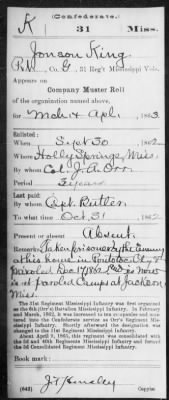 (Confederate.)
K 31 Miss.
Jonson King
Pvt., Co. G, 31 Reg't Mississippi Vols.
Appears on
Company Muster Roll
of the organization named above,
for Mch & Apl, 1863
Enlisted:
When Sept 30 1862
Where Holly Springs, Miss.
By whom Col. J. A. Orr
Period 3 years
Last paid:
By whom Capt. Butler
To what time Oct. 31 1862
Present or absent Absent.
Remarks: Taken prisoner by the Enemy
at his home in Pontotoc Cty &
paroled Dec. 17/1862 and is now
at paroled Camps at Jackson
Miss.
The 31st Regiment Mississippi Infantry was first organized
as the 6th (Orr's) Battalion Mississippi Infantry. In February
and March, 1862, it was increased to ten companies and mus-
tered into the Confederate service as Orr's Regiment Mis-
sissippi Infantry. Shortly afterward the designation was
changed to the 31st Regiment Mississippi Infantry.
About April 9, 1865, this regiment was consolidated with
the 3d and 40th Regiments Mississippi Infantry and formed
the 3d Consolidated Regiment Mississippi Infantry.
Book mark:
(642) J T Hensley
Copyist.